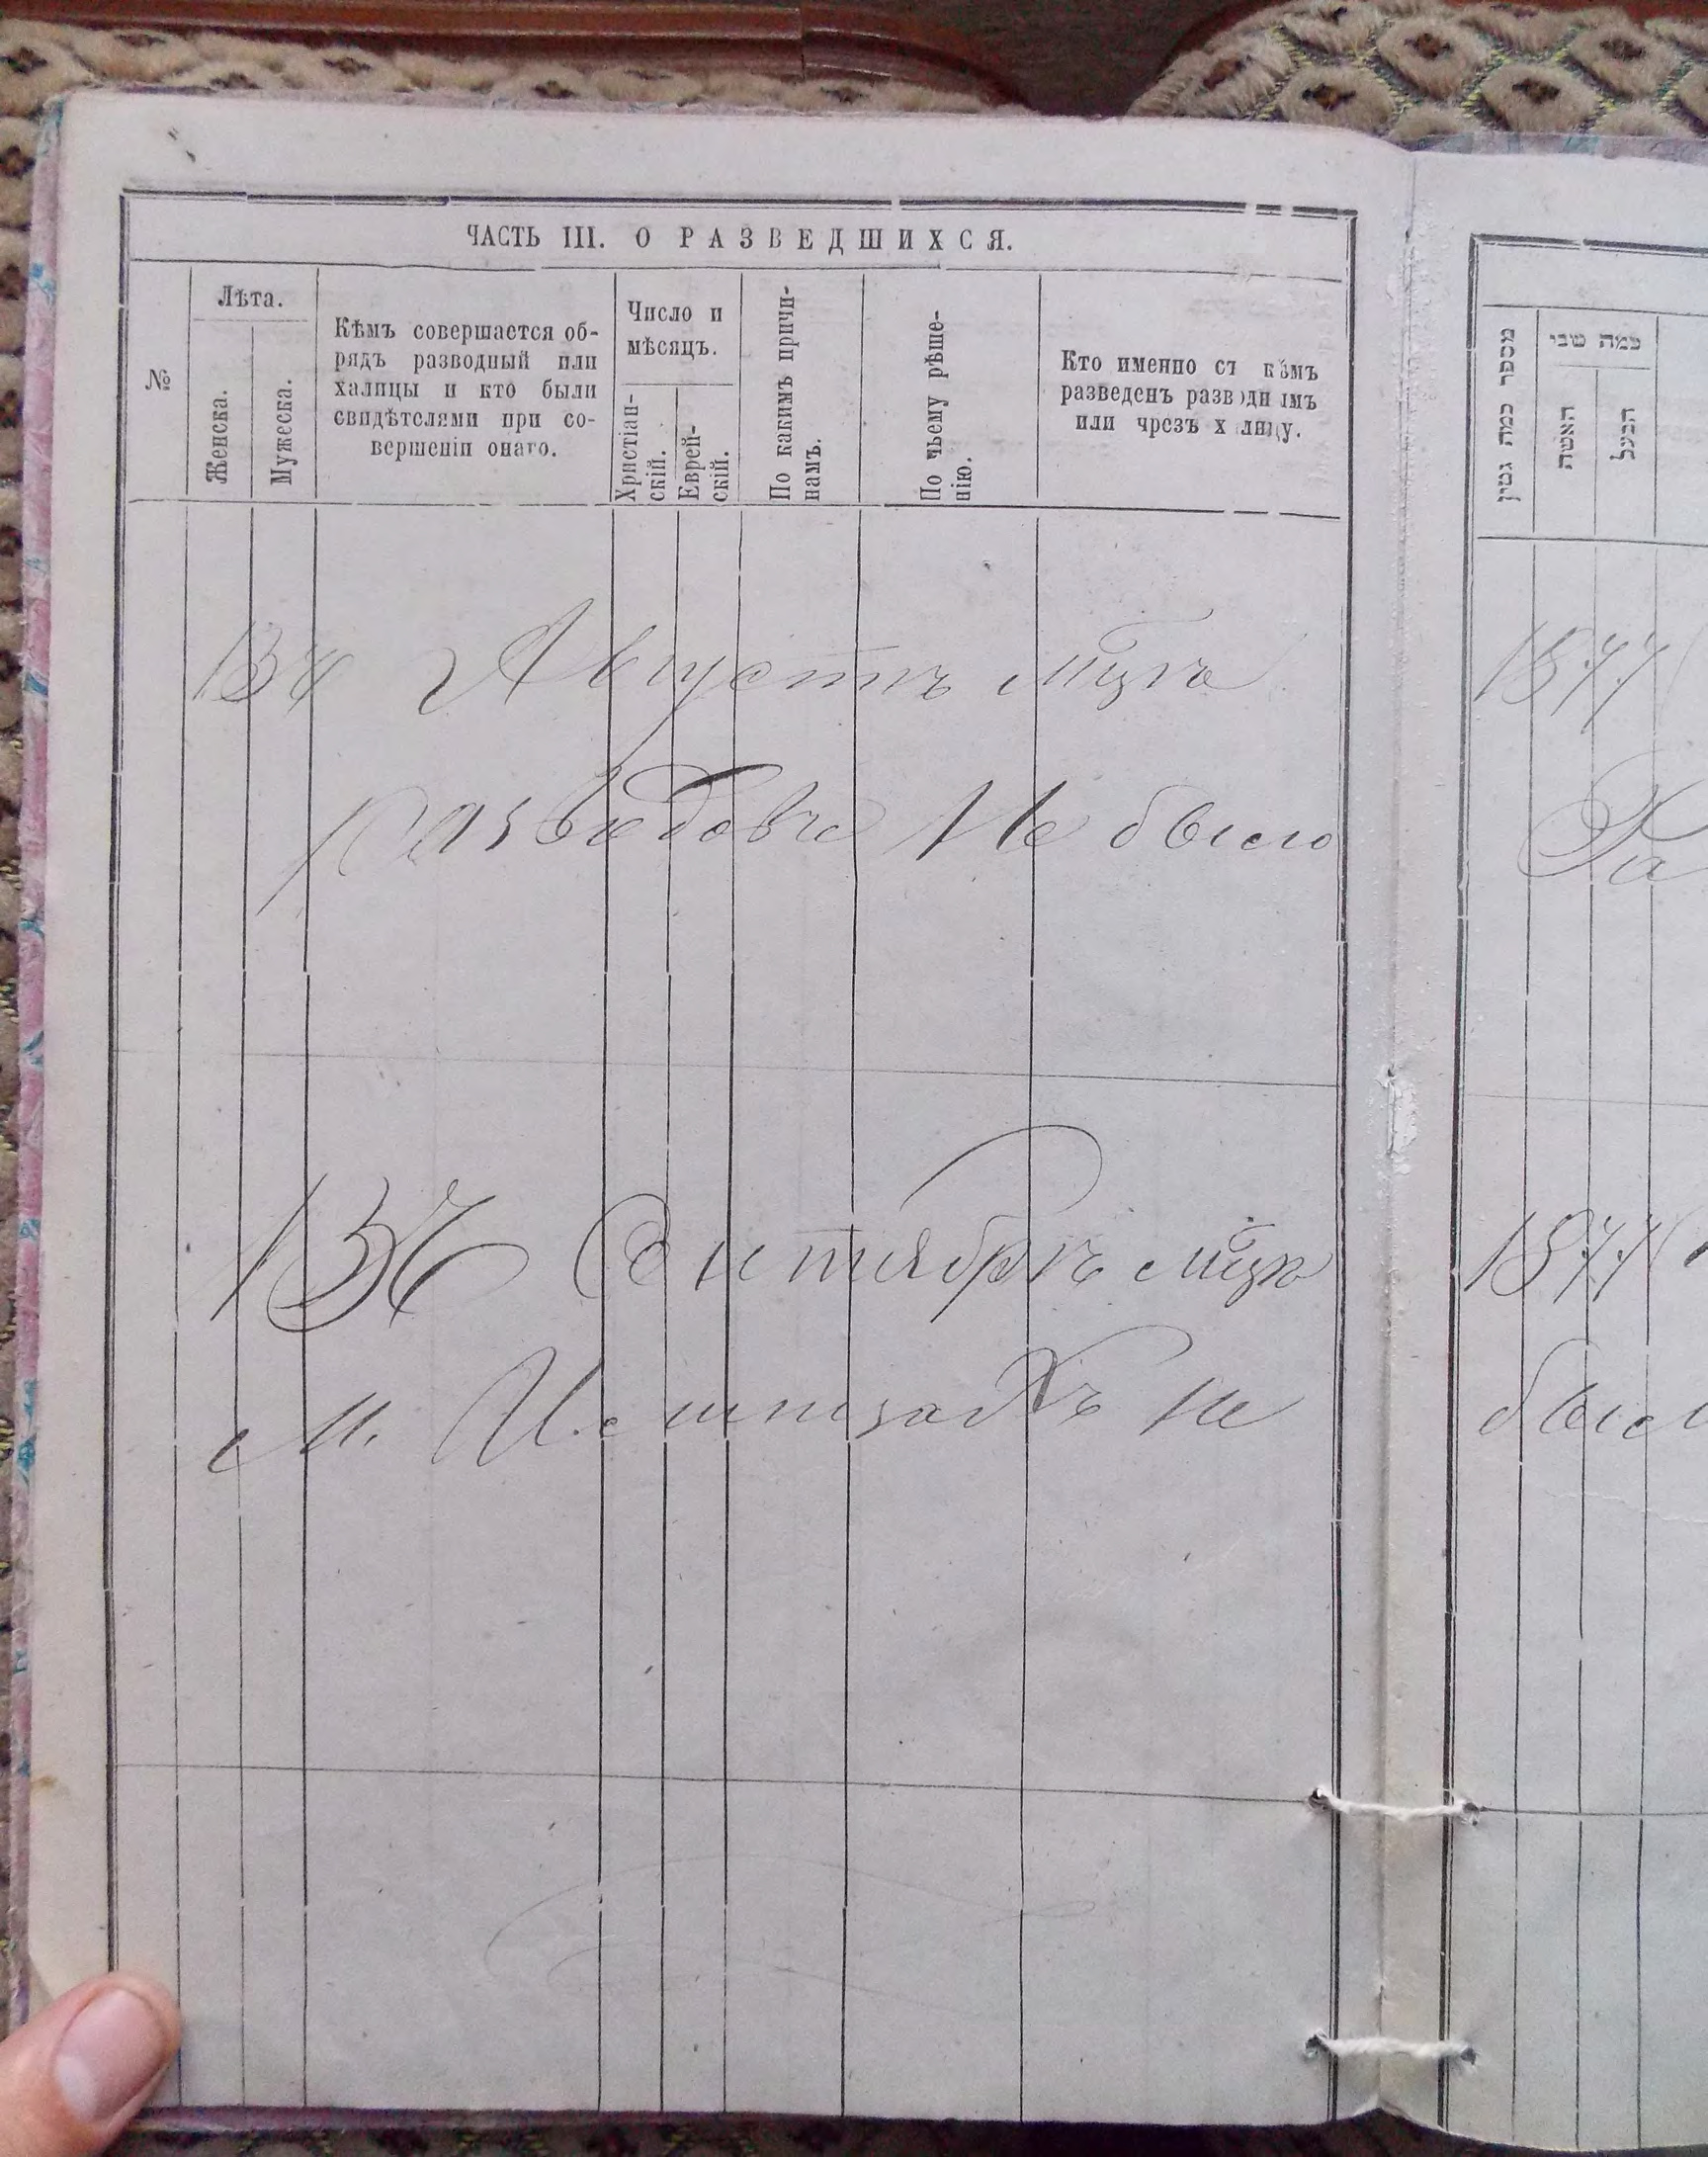 ЧАСТЬ III. О РАЗВЕДШИХСЯ.
№
Лѣта.
Женска.
Мужеска.
Кѣмъ совершается об-
рядъ разводный или
халицы и кто были
свидѣтелями при со-
вершеніи онаго.
Число и
мѣсяцъ.
Христіан-
скій.
Еврей-
скій.
По какимъ причи-
намъ.
По чьему рѣше-
нію.
Кто именно съ кѣмъ
разведенъ разводнымъ
или чрезъ халицу.
Августъ мцъ
разводовъ не было
Сентябръ мцъ
не
מספר כמה גטין
כמה שני
האשה
הבעל
1877
Ра
1877
был